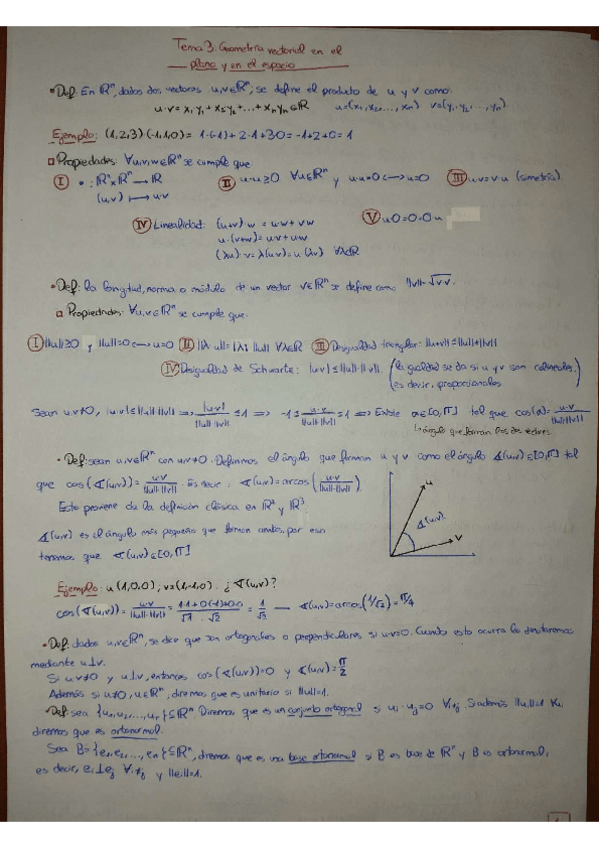 Tema 3: Geometría vectorial en el
plano y en el espacio
• Def: En ℝⁿ, dados dos vectores u,v∈ℝⁿ, se define el producto de u y v como:
u·v = x₁y₁+x₂y₂+...+xₙyₙ∈ℝ u=(x₁,x₂,...,xₙ) v=(y₁,y₂,...,yₙ)
Ejemplo: (1,2,3)·(-1,1,0) = 1·(-1)+2·1+3·0 = -1+2+0 = 1
Propiedades: ∀u,v,w∈ℝⁿ se cumple que
I · : ℝⁿ×ℝⁿ → ℝ II u·u≥0 ∀u∈ℝⁿ y u·u=0 ⟷ u=0 III u·v=v·u (simetría)
(u,v) ⟼ u·v
IV Linealidad: (u+v)·w = u·w+v·w V u·0=0·0·u
u·(v+w) = u·v+u·w
(λu)·v = λ(u·v) = u·(λv) ∀λ∈ℝ
• Def: la longitud, norma o módulo de un vector v∈ℝⁿ se define como ||v||=√v·v.
Propiedades: ∀u,v∈ℝⁿ se cumple que:
I ||u||≥0 y ||u||=0 ⟷ u=0 II ||λ·u||=|λ|·||u|| ∀λ∈ℝ III Desigualdad triangular: ||u+v||≤||u||+||v||
IV Desigualdad de Schwartz: |u·v|≤||u||·||v||. (la igualdad se da si u y v son colineales,
es decir, proporcionales)
Sean u,v≠0, |u·v|≤||u||·||v|| ⟹ |u·v|/||u||·||v|| ≤1 ⟹ -1≤ u·v/||u||·||v|| ≤1 ⟹ Existe α∈[0,π] tal que cos(α)= u·v/||u||·||v||
↳ángulo que forman los dos vectores
• Def: sean u,v∈ℝⁿ con u,v≠0. Definimos el ángulo que forman u y v como el ángulo ∢(u,v)∈[0,π] tal
que cos(∢(u,v)) = u·v/||u||·||v||. Es decir: ∢(u,v)=arcos(u·v/||u||·||v||)
Esto proviene de la definición clásica en ℝ² y ℝ³
∢(u,v) es el ángulo más pequeño que forman ambos, por eso
tenemos que ∢(u,v)∈[0,π]
u
∢(u,v)
v
Ejemplo: u(1,0,0); v=(1,-1,0). ¿∢(u,v)?
cos(∢(u,v)) = u·v/||u||·||v|| = 1·1+0·(-1)+0·0/√1·√2 = 1/√2 — ∢(u,v)=arcos(1/√2)=π/4
• Def: dados u,v∈ℝⁿ, se dice que son ortogonales o perpendiculares si u·v=0. Cuando esto ocurra lo denotaremos
mediante u⊥v.
Si u,v≠0 y u⊥v, entonces cos(∢(u,v))=0 y ∢(u,v)=π/2
Además si u≠0, u∈ℝⁿ, diremos que es unitario si ||u||=1.
• Def: sea {u₁,u₂,...,uᵣ}⊆ℝⁿ. Diremos que es un conjunto ortogonal si uᵢ·uⱼ=0 ∀i≠j. Si además ||uᵢ||=1 ∀i,
diremos que es ortonormal.
Sea B={e₁,e₂,...,eₙ}⊆ℝⁿ, diremos que es una base ortonormal si B es base de ℝⁿ y B es ortonormal,
es decir, eᵢ⊥eⱼ ∀i≠j y ||eᵢ||=1.